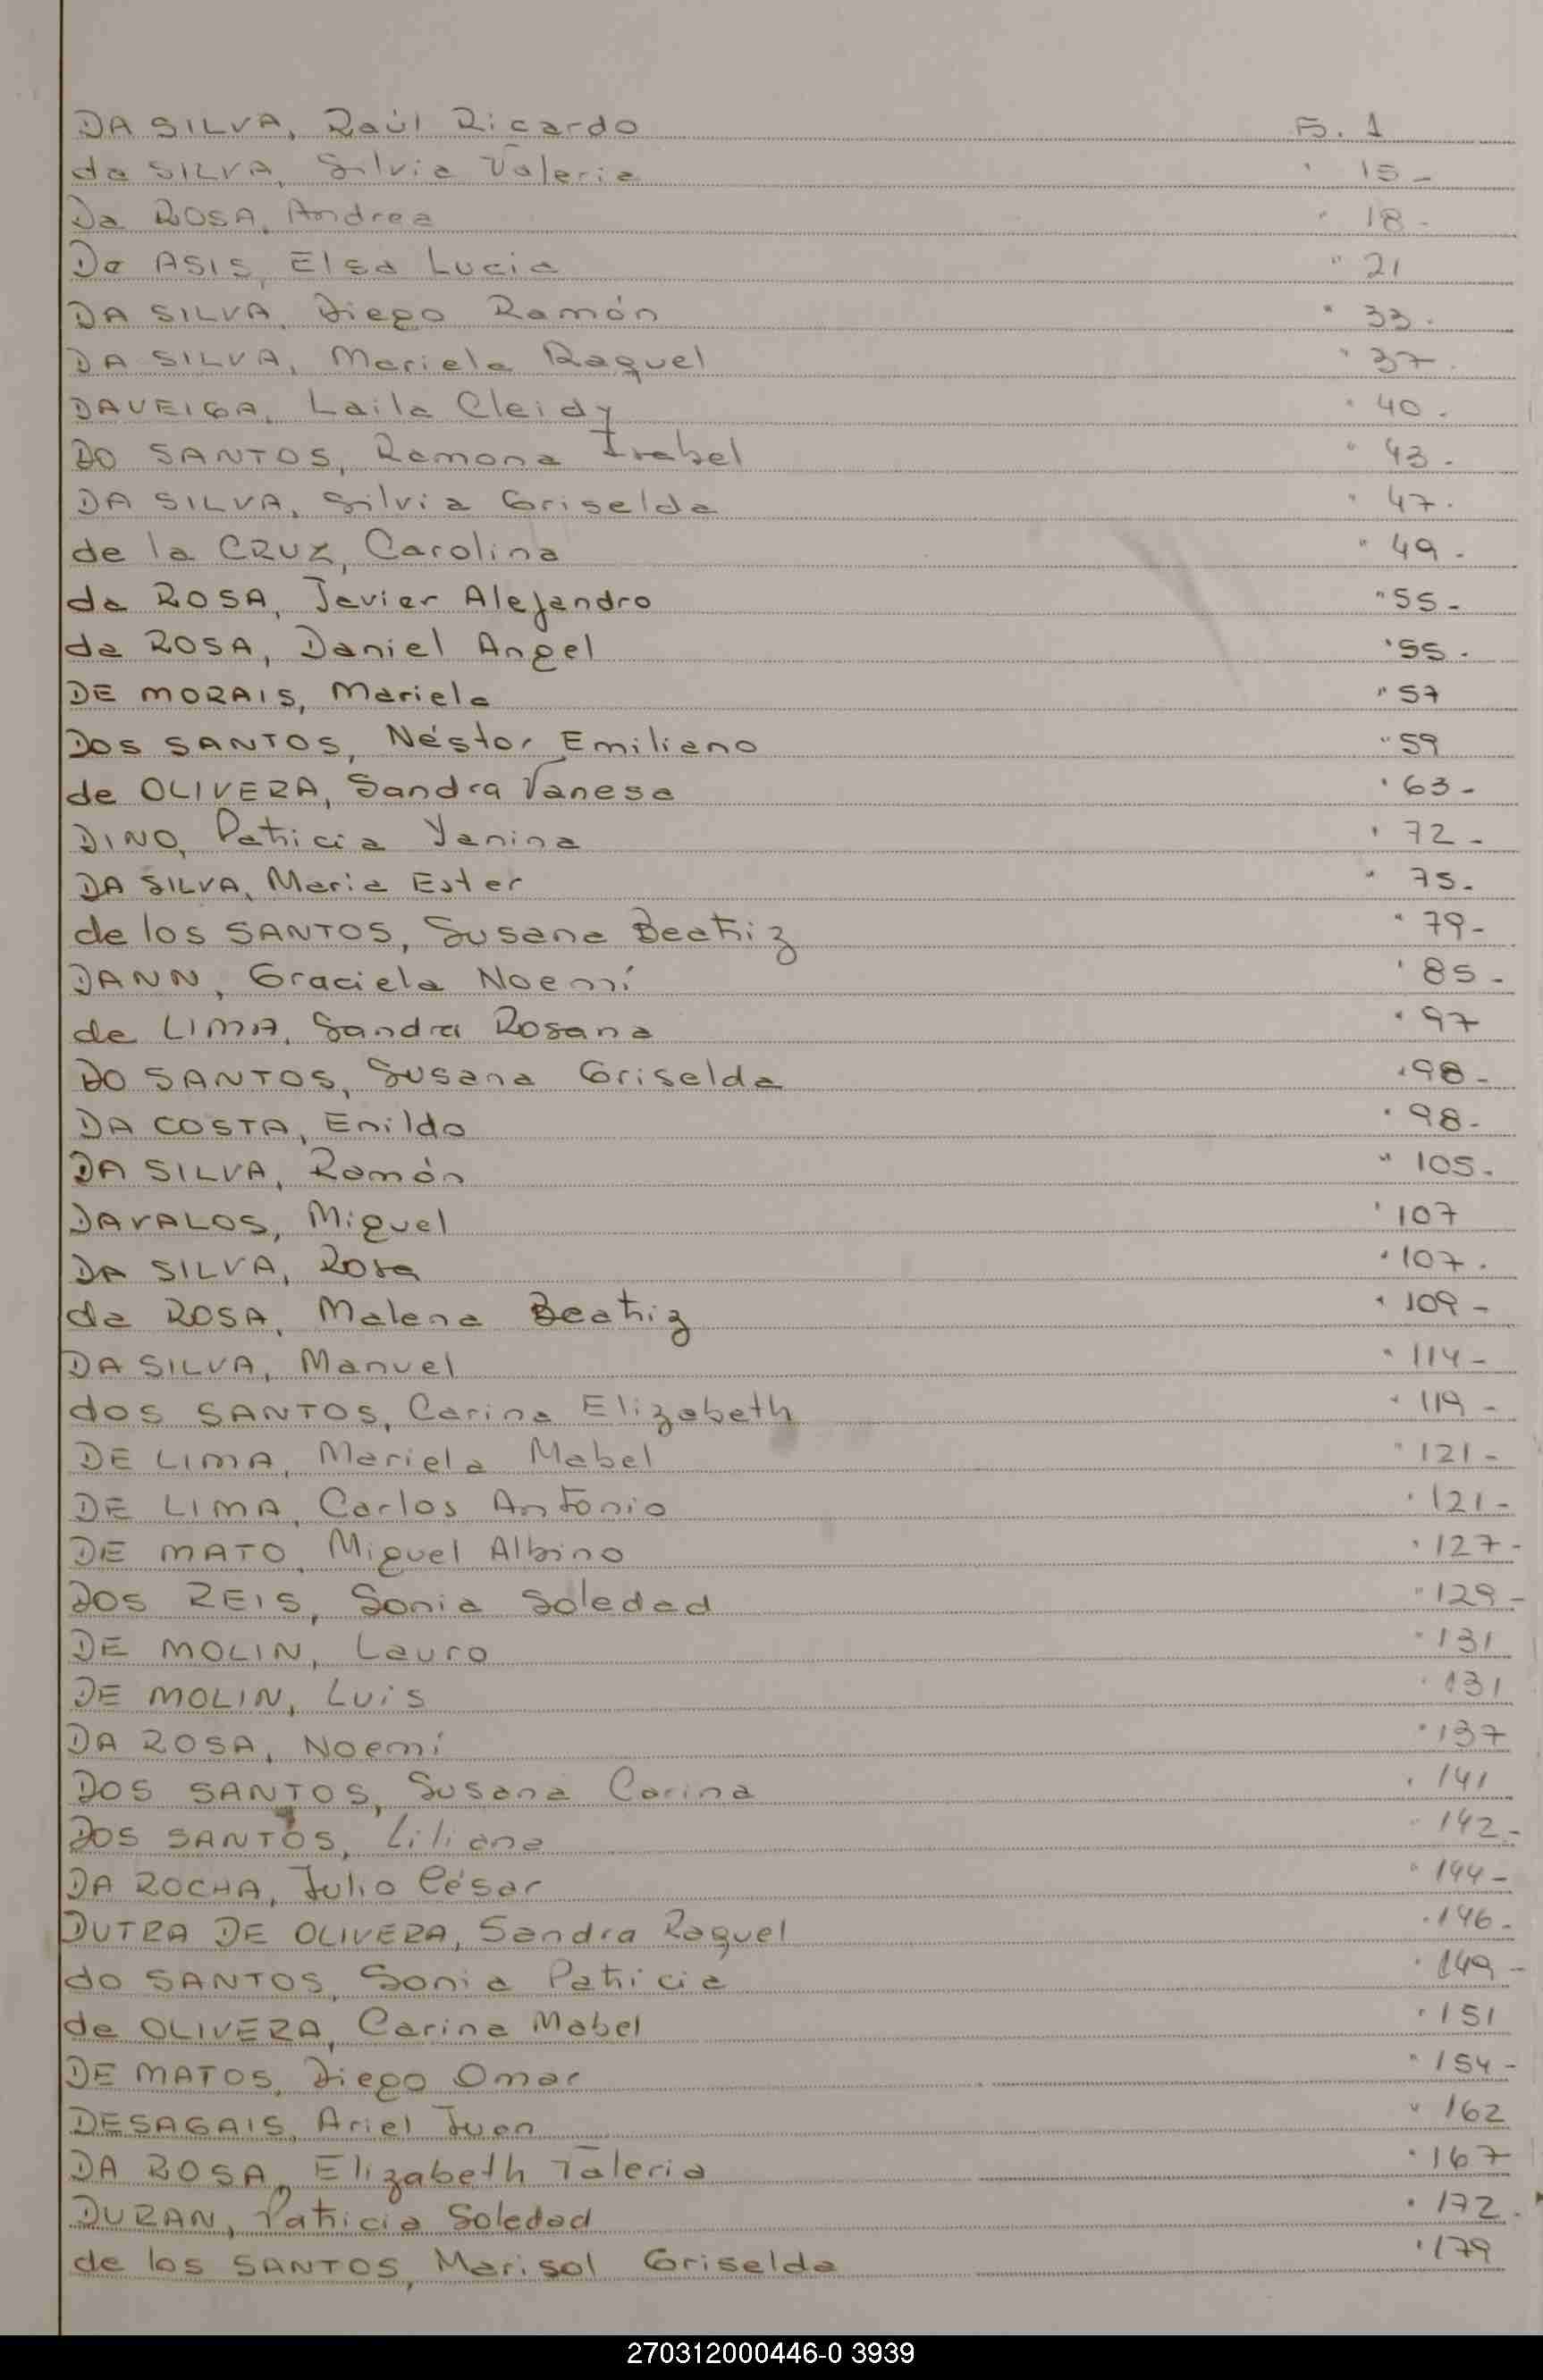 DA SILVA, Raúl Ricardo F. 1
da SILVA, Silvia Valeria " 15 -
Da ROSA, Andrea " 18 -
De ASIS, Elsa Lucia " 21
DA SILVA, Diego Ramón " 33.
DA SILVA, Mariela Raquel " 37.
DAVEIGA, Laila Cleidy " 40.
DO SANTOS, Ramona Isabel " 43.
DA SILVA, Silvia Griselda " 47.
de la CRUZ, Carolina " 49.
da ROSA, Javier Alejandro " 55 -
da ROSA, Daniel Angel " 55.
DE MORAIS, Mariela " 57
DOS SANTOS, Néstor Emiliano " 59
de OLIVERA, Sandra Vanesa " 63 -
DINO, Patricia Yanina " 72 -
DA SILVA, Maria Ester " 75.
de los SANTOS, Susana Beatriz " 79 -
DANN, Graciela Noemí " 85 -
de LIMA, Sandra Rosana " 97
DO SANTOS, Susana Griselda " 98 -
DA COSTA, Enildo " 98 -
DA SILVA, Ramón " 105.
DAVALOS, Miguel " 107
DA SILVA, Rosa " 107.
da ROSA, Malena Beatriz " 109 -
DA SILVA, Manuel " 114 -
dos SANTOS, Carina Elizabeth " 119 -
DE LIMA, Mariela Mabel " 121 -
DE LIMA, Carlos Antonio " 121 -
DE MATO, Miguel Albino " 127 -
DOS REIS, Sonia Soledad " 129 -
DE MOLIN, Lauro " 131
DE MOLIN, Luis " 131
DA ROSA, Noemí " 137
DOS SANTOS, Susana Carina " 141
DOS SANTOS, Liliana " 142 -
DA ROCHA, Julio César " 144 -
DUTRA DE OLIVERA, Sandra Raquel " 146.
do SANTOS, Sonia Patricia " 149 -
de OLIVERA, Carina Mabel " 151
DE MATOS, Diego Omar " 154 -
DESAGAIS, Ariel Juan " 162
DA ROSA, Elizabeth Valeria " 167
DURAN, Patricia Soledad " 172.
de los SANTOS, Marisol Griselda " 179
270312000446-0 3939